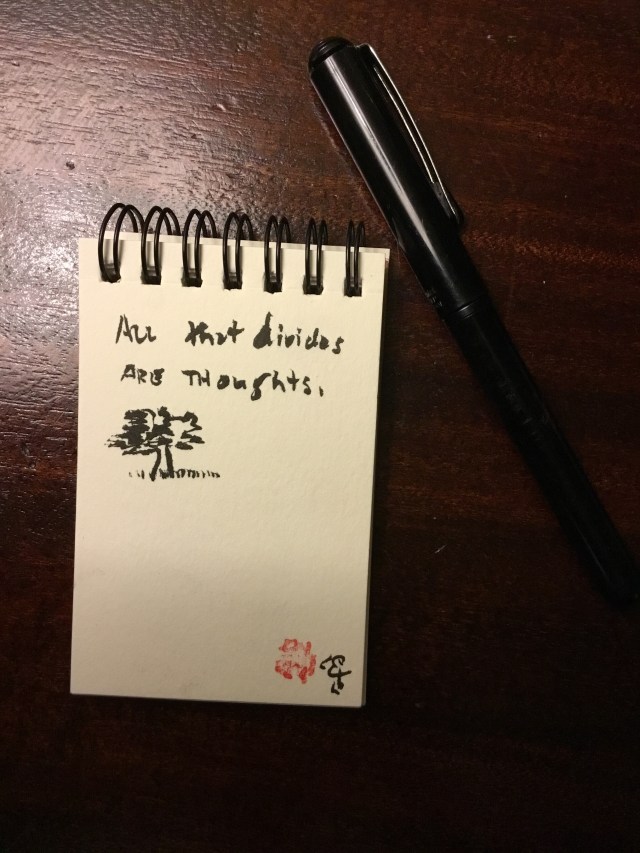 ALL that divides
ARE THoughts.